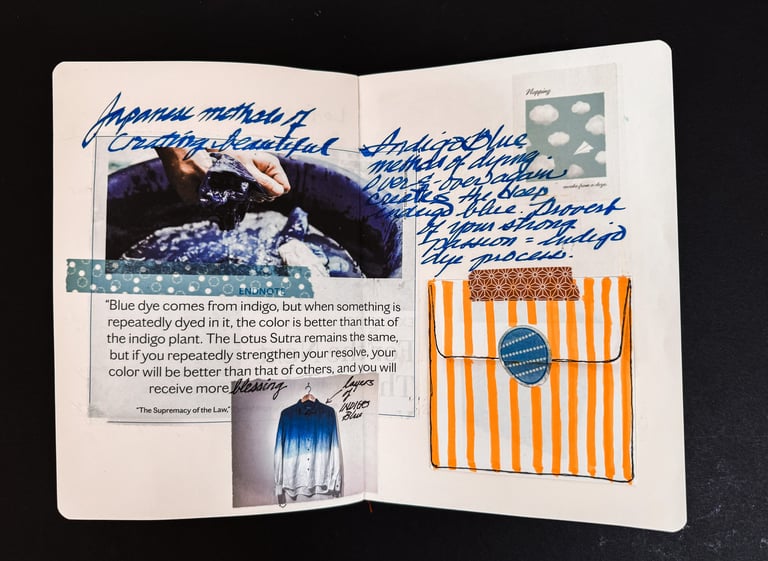 Japanese methods of
Creating beautiful
ENDNOTE
“Blue dye comes from indigo, but when something is
repeatedly dyed in it, the color is better than that of
the indigo plant. The Lotus Sutra remains the same,
but if you repeatedly strengthen your resolve, your
color will be better than that of others, and you will
receive more blessing
“The Supremacy of the Law,”
layers
of
INDIGO
Blue
Indigo Blue
method of dying
over & over again
creates the deep
indigo blue. Proverb
of your strong
passion = indigo
dye process.